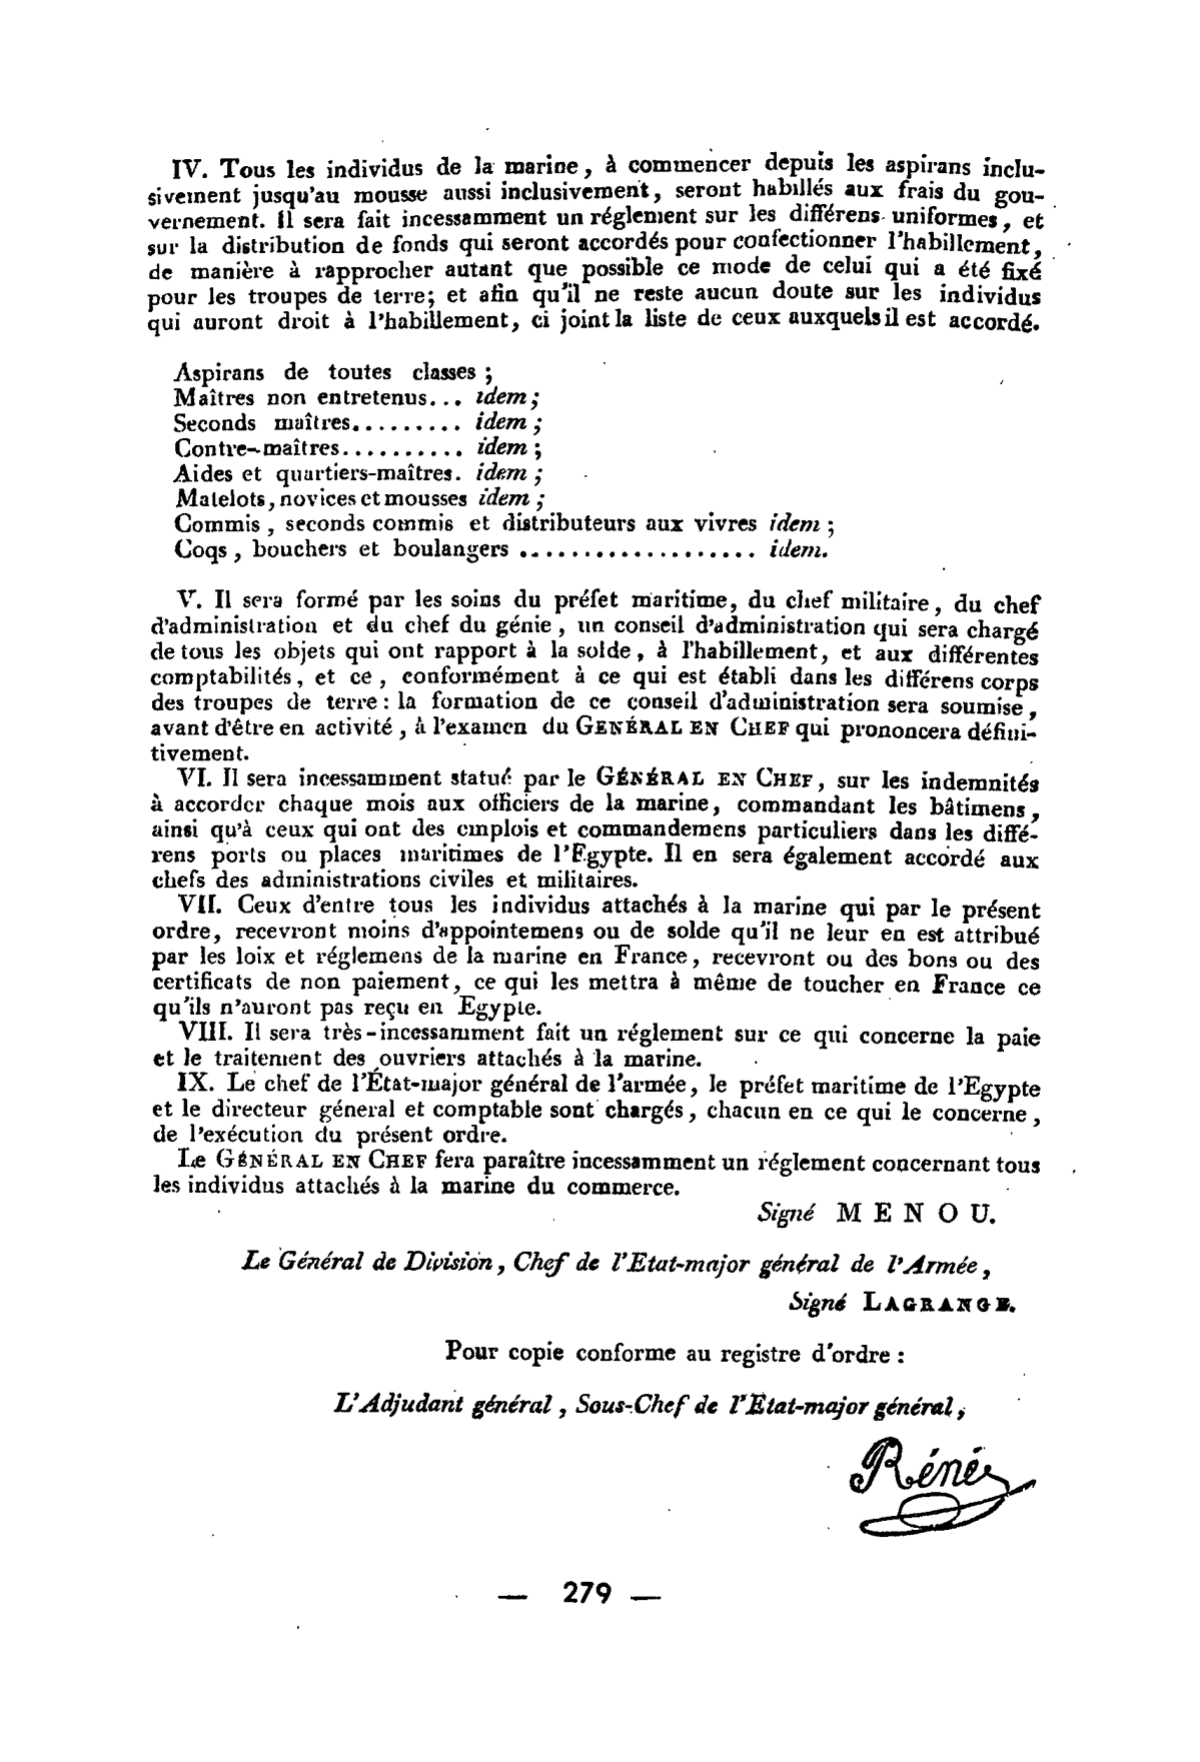 IV. Tous les individus de la marine, à commencer depuis les aspirans inclu-
sivement jusqu'au mousse aussi inclusivement, seront habillés aux frais du gou-
vernement. Il sera fait incessamment un réglement sur les différens uniformes, et
sur la distribution de fonds qui seront accordés pour confectionner l'habillement,
de manière à rapprocher autant que possible ce mode de celui qui a été fixé
pour les troupes de terre; et afin qu'il ne reste aucun doute sur les individus
qui auront droit à l'habillement, ci joint la liste de ceux auxquels il est accordé.
Aspirans de toutes classes ;
Maîtres non entretenus... idem ;
Seconds maîtres.......... idem ;
Contre-maîtres.......... idem ;
Aides et quartiers-maîtres. idem ;
Matelots, novices et mousses idem ;
Commis , seconds commis et distributeurs aux vivres idem ;
Coqs , bouchers et boulangers ................... idem.
V. Il sera formé par les soins du préfet maritime, du chef militaire, du chef
d'administration et du chef du génie, un conseil d'administration qui sera chargé
de tous les objets qui ont rapport à la solde, à l'habillement, et aux différentes
comptabilités, et ce, conformément à ce qui est établi dans les différens corps
des troupes de terre : la formation de ce conseil d'administration sera soumise,
avant d'être en activité, à l'examen du GÉNÉRAL EN CHEF qui prononcera défini-
tivement.
VI. Il sera incessamment statué par le GÉNÉRAL EN CHEF, sur les indemnités
à accorder chaque mois aux officiers de la marine, commandant les bâtimens,
ainsi qu'à ceux qui ont des emplois et commandemens particuliers dans les diffé-
rens ports ou places maritimes de l'Egypte. Il en sera également accordé aux
chefs des administrations civiles et militaires.
VII. Ceux d'entre tous les individus attachés à la marine qui par le présent
ordre, recevront moins d'appointemens ou de solde qu'il ne leur en est attribué
par les loix et réglemens de la marine en France, recevront ou des bons ou des
certificats de non paiement, ce qui les mettra à même de toucher en France ce
qu'ils n'auront pas reçu en Egypte.
VIII. Il sera très-incessamment fait un réglement sur ce qui concerne la paie
et le traitement des ouvriers attachés à la marine.
IX. Le chef de l'État-major général de l'armée, le préfet maritime de l'Egypte
et le directeur géneral et comptable sont chargés, chacun en ce qui le concerne,
de l'exécution du présent ordre.
Le GÉNÉRAL EN CHEF fera paraître incessamment un réglement concernant tous
les individus attachés à la marine du commerce.
Signé MENOU.
Le Général de Division, Chef de l'Etat-major général de l'Armée,
Signé LAGRANGE.
Pour copie conforme au registre d'ordre :
L'Adjudant général, Sous-Chef de l'Etat-major général,
Réné
— 279 —